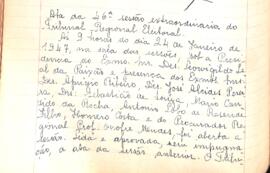 Ata da 26ª sessão extraordinaria do
Tribunal Regional Eleitoral.
As 9 horas do dia 24 de Janeiro de
1947, na sala das sessões sob a Presi-
dencia do Exmo. Snr. Des. Leovigildo Le-
al da Paixão e presença dos Exmos. Snrs.
Des. Aprigio Ribeiro, Des. José Alcides Perei-
ra, Drs. Sebastião de Souza, Mario Can-
dido da Rocha, Antonio de Rezende
Filho, Homero Costa e do Procurador Re-
gional Prof. Onofre Mendes, foi aberta a
sessão. Lida e aprovada, sem impugna-
ção, a ata da sessão anterior. O